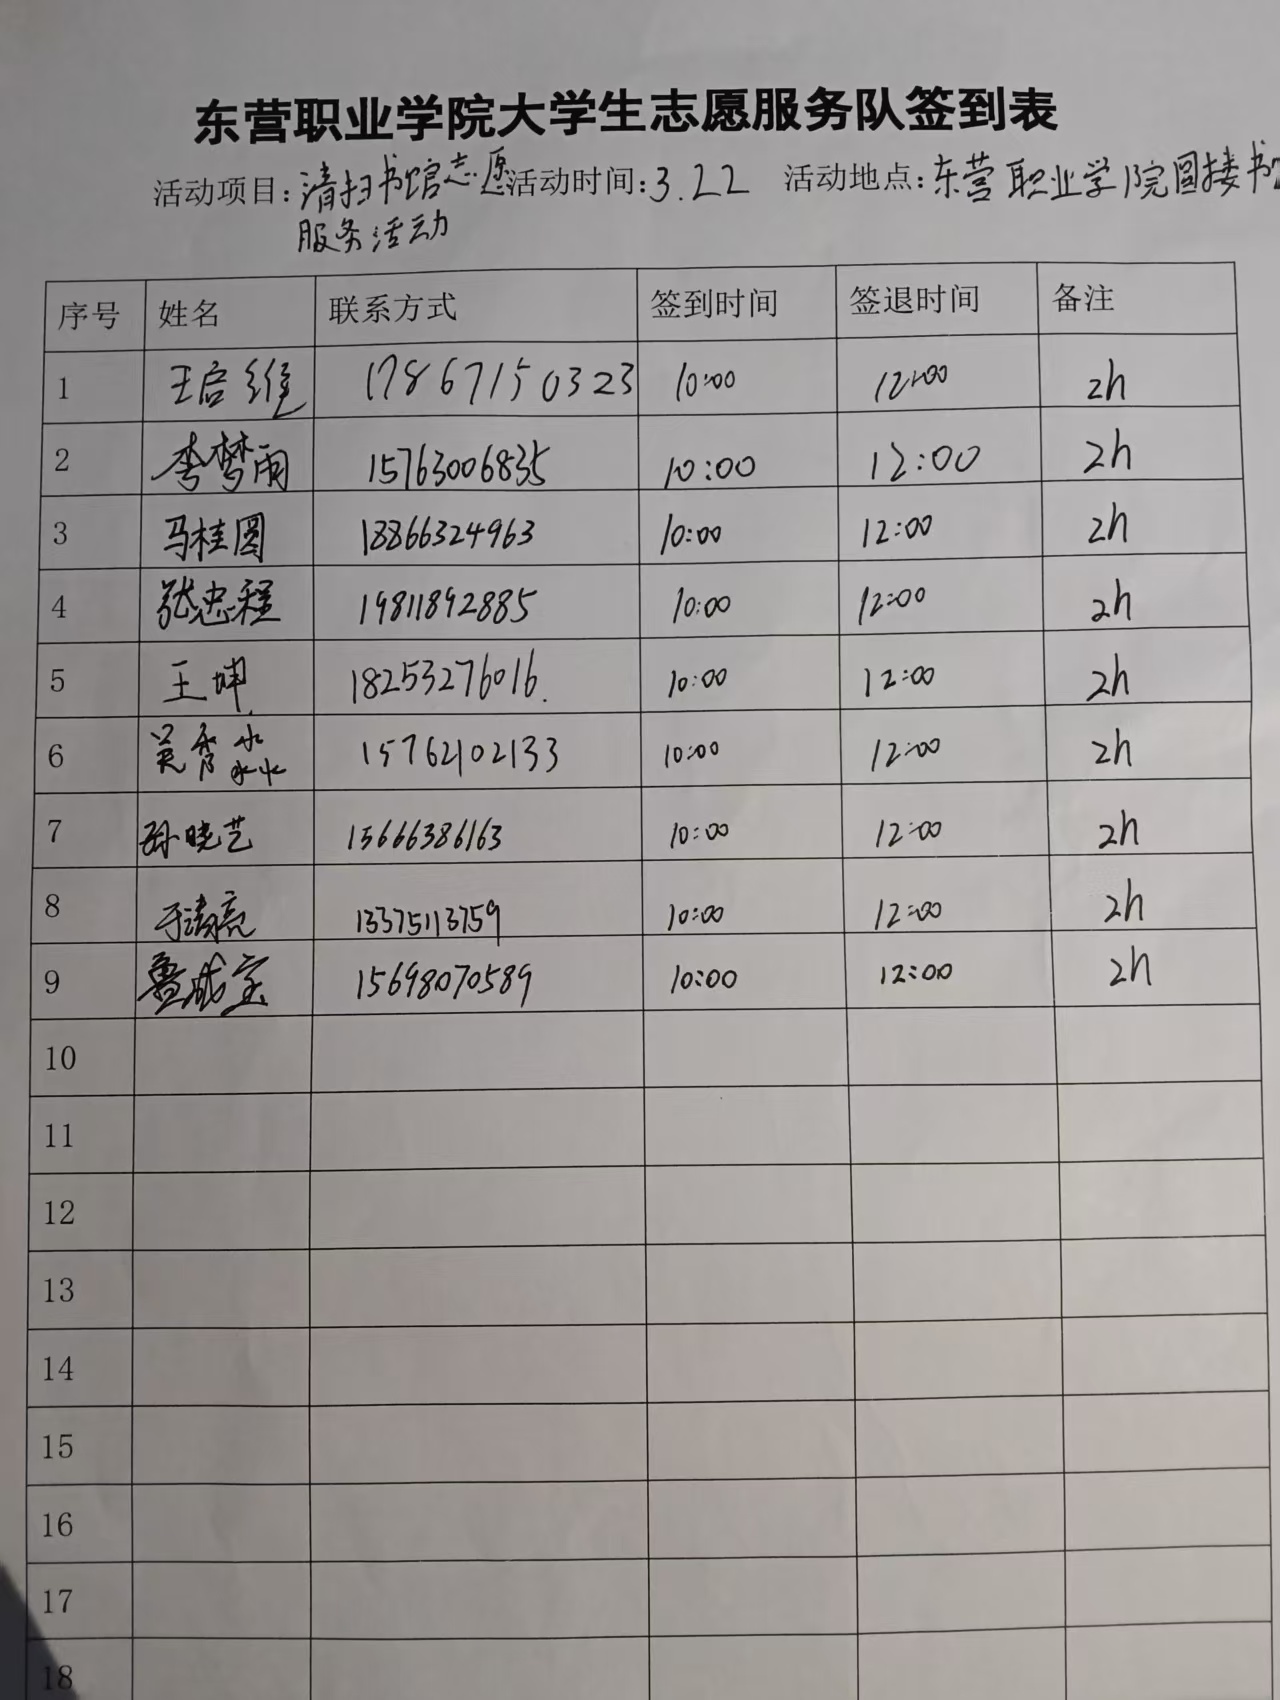 东营职业学院大学生志愿服务队签到表
活动项目:清扫书馆志愿 活动时间:3.22 活动地点:东营职业学院图接书
服务活动
序号 姓名 联系方式 签到时间 签退时间 备注
1 王启维 17867150323 10:00 12:00 2h
2 李梦雨 15763006835 10:00 12:00 2h
3 马桂圆 18866324963 10:00 12:00 2h
4 张忠程 19811892885 10:00 12:00 2h
5 王坤 18253276016. 10:00 12:00 2h
6 吴秀淼 15762102133 10:00 12:00 2h
7 孙晓艺 15666386163 10:00 12:00 2h
8 于清亮 13375113759 10:00 12:00 2h
9 鲁成宝 15698070589 10:00 12:00 2h
10
11
12
13
14
15
16
17
18